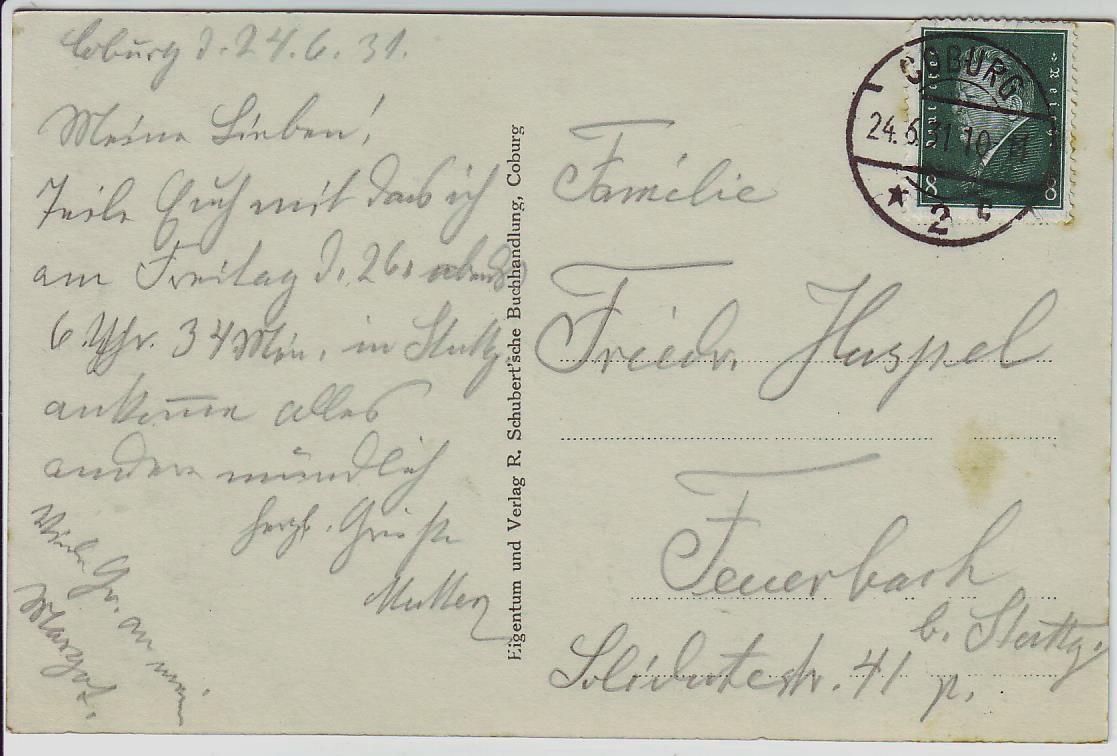 Coburg d. 24.6.31.
Meine Lieben!
Teile Euch mit das ich
am Freitag d. 26. abends
6 Uhr. 34 Min. in Stuttg.
ankom̅e alles
andere mündlich
herzl. Grüße
Mutter
Viele Gr. an
Margot.
Eigentum und Verlag R. Schubert'sche Buchhandlung, Coburg
COBURG
24.6.31 10-11
* 2 c
8 8
Familie
Friedr. Haspel
Feuerbach
b. Stuttg.
Soliducestr. 41 p.